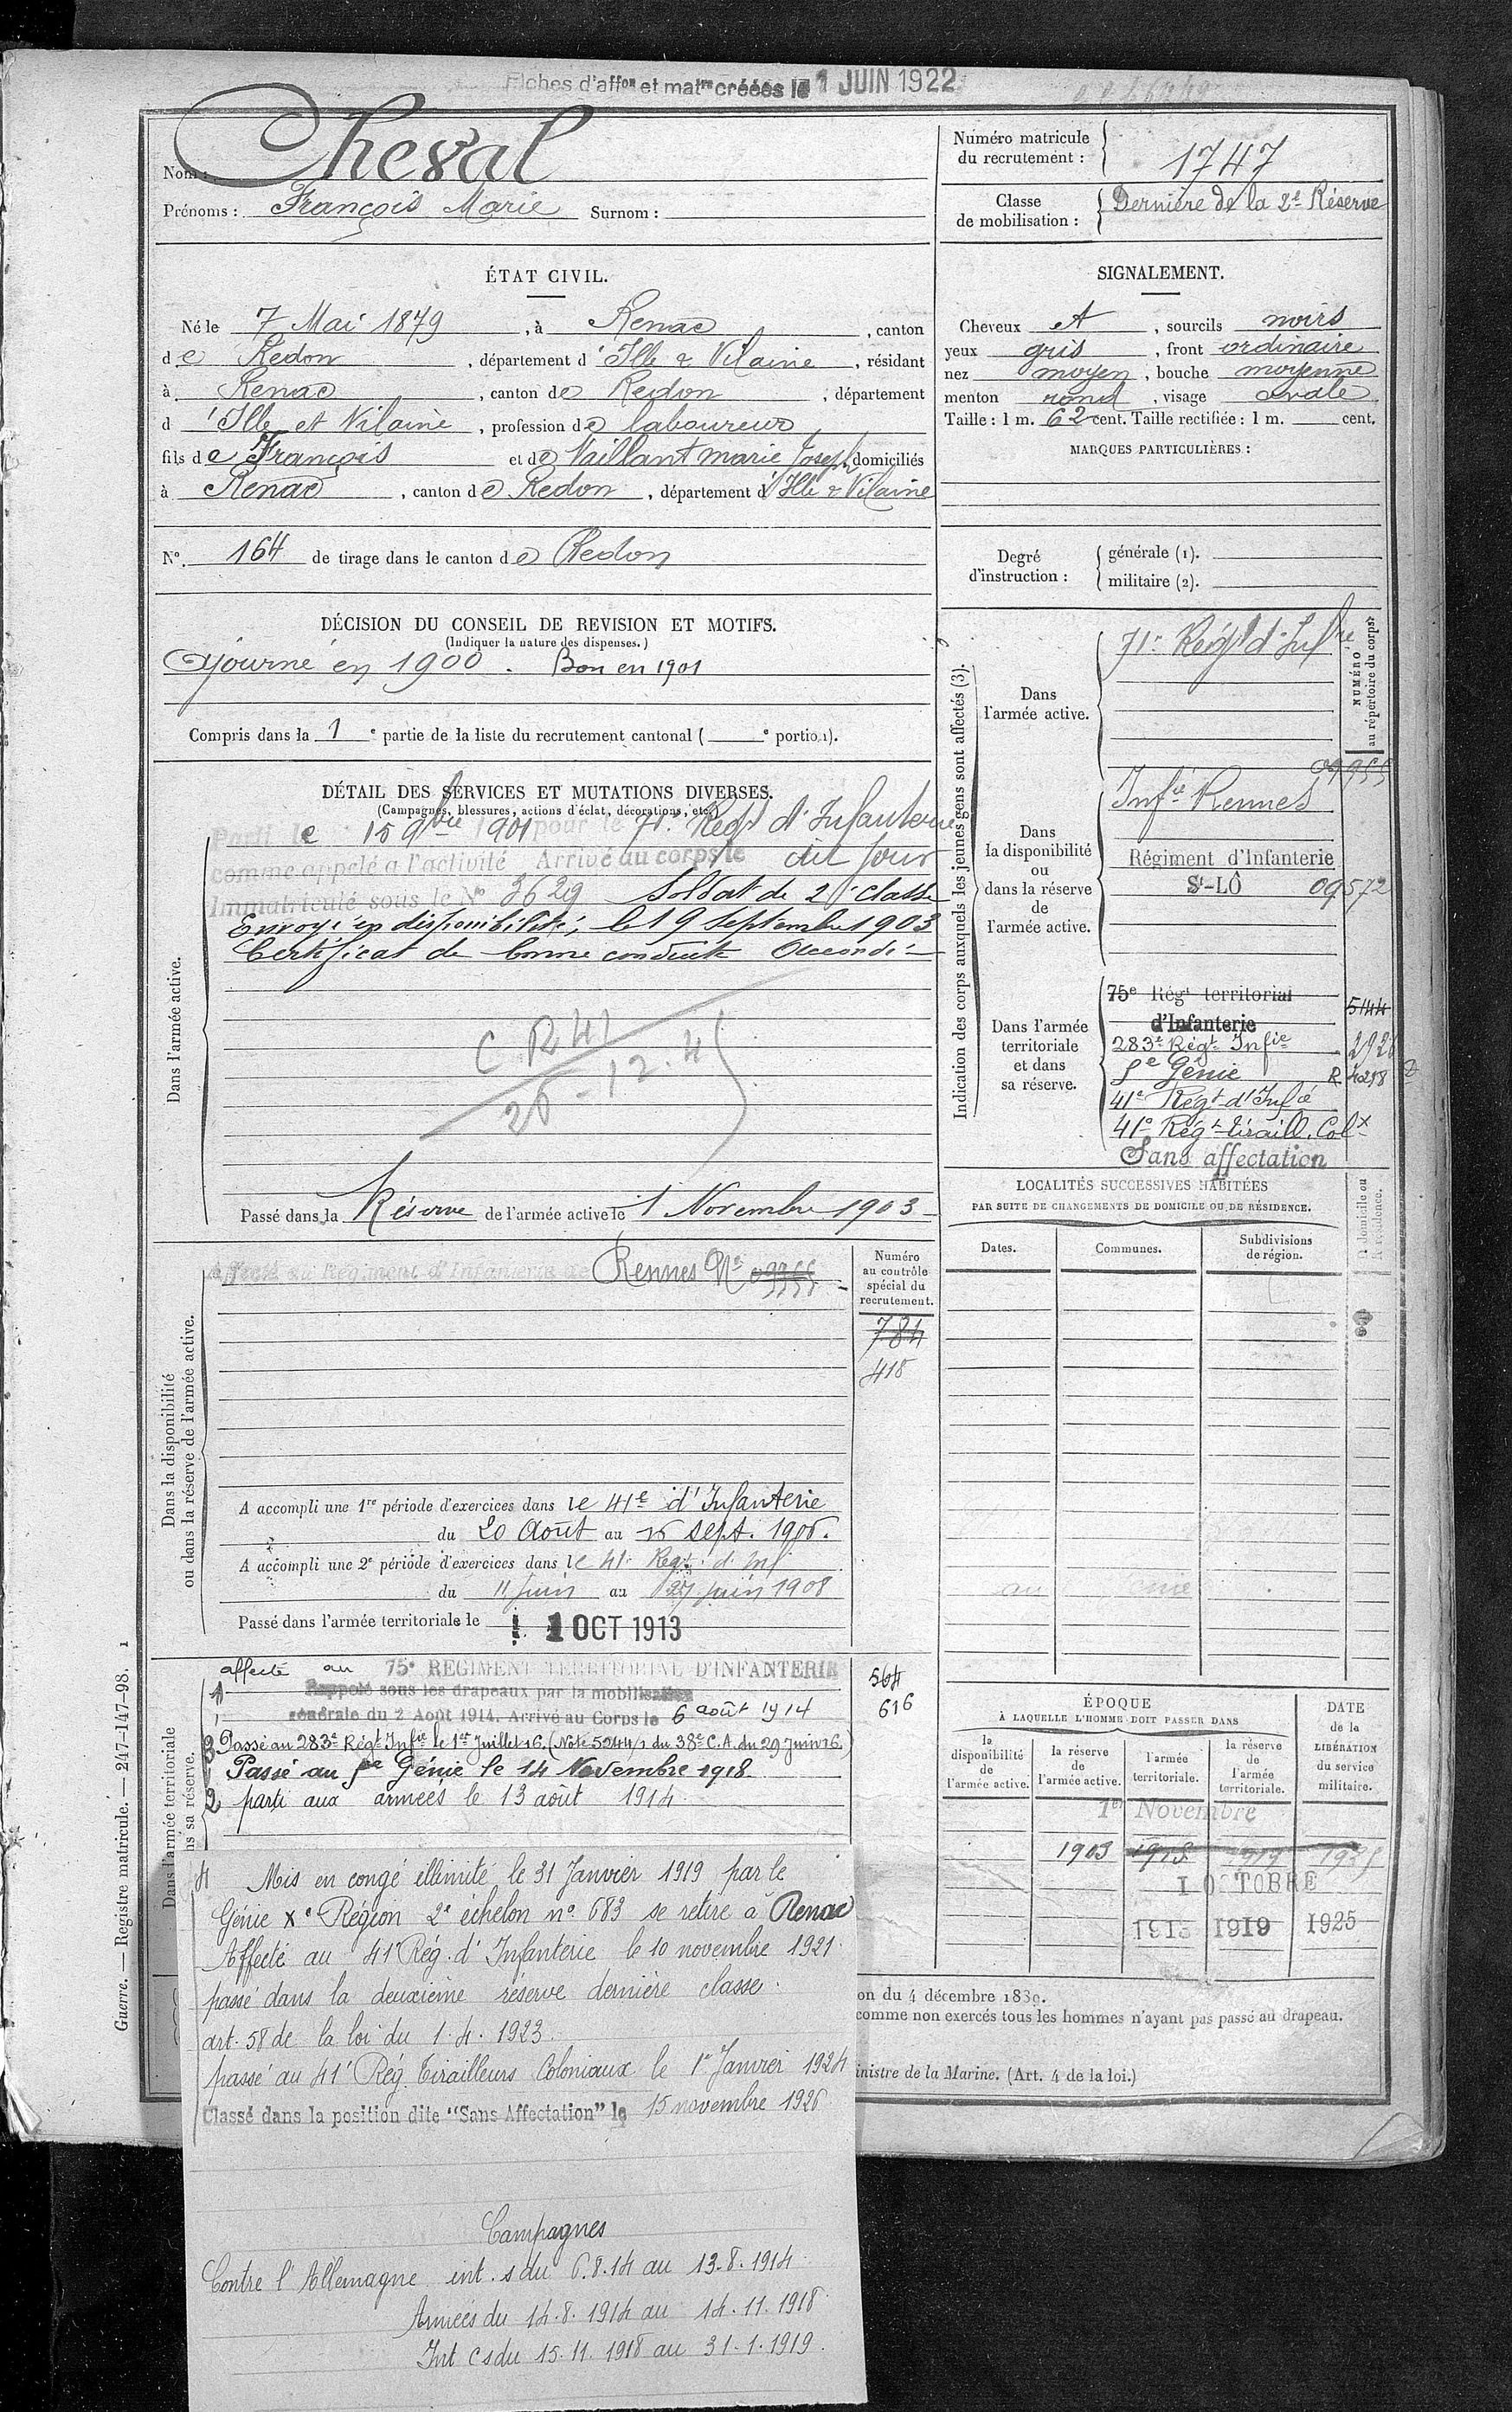 Fiches d'affon et matre créées le 1 JUIN 1922
Nom : Cheval
Prénoms : François Marie Surnom :
Numéro matricule du recrutement : 1747
Classe de mobilisation : Dernière de la 2e Réserve
ÉTAT CIVIL.
Né le 7 Mai 1879, à Renac, canton
de Redon, département d'Ille & Vilaine, résidant
à Renac, canton de Redon, département
d'Ille et Vilaine, profession de laboureur
fils de François et de Vaillant marie Joseph domiciliés
à Renac, canton de Redon, département d'Ille & Vilaine
No. 164 de tirage dans le canton de Redon
SIGNALEMENT.
Cheveux et, sourcils noirs
yeux gris, front ordinaire
nez moyen, bouche moyenne
menton rond, visage ovale
Taille : 1 m. 62 cent. Taille rectifiée : 1 m. cent.
MARQUES PARTICULIÈRES :
Degré d'instruction : générale (1).
militaire (2).
DÉCISION DU CONSEIL DE REVISION ET MOTIFS.
(Indiquer la nature des dispenses.)
Ajourné en 1900. Bon en 1901
Compris dans la 1e partie de la liste du recrutement cantonal ( e portion).
DÉTAIL DES SERVICES ET MUTATIONS DIVERSES.
(Campagnes, blessures, actions d'éclat, décorations, etc.)
Dans l'armée active.
Parti le 15 9bre 1901 pour le 71e Régt d'Infanterie
comme appelé a l'activité Arrivé au corps le dit jour
Immatriculé sous le No 3629 Soldat de 2e classe
Envoyé en disponibilité, le 19 Septembre 1903
Certificat de bonne conduite Accordé
C. R 41
Passé dans la Réserve de l'armée active le 1 Novembre 1903
Indication des corps auxquels les jeunes gens sont affectés (3).
NUMÉRO au répertoire du corps.
Dans l'armée active.
71e Régt d'Infie
Dans la disponibilité ou dans la réserve de l'armée active.
09955
Infie Rennes
Régiment d'Infanterie
St-LÔ 09572
Dans l'armée territoriale et dans sa réserve.
75e Régt territorial
d'Infanterie 544
283e Régt Infie
Génie R 4258
41e Régt d'Infie
41e Régt tiraill. Colx
Sans affectation
LOCALITÉS SUCCESSIVES HABITÉES
PAR SUITE DE CHANGEMENTS DE DOMICILE OU DE RÉSIDENCE.
Dates. Communes. Subdivisions de région. D domicile ou R résidence.
Dans la disponibilité ou dans la réserve de l'armée active.
Affecté au Régiment d'Infanterie de Rennes No
Numéro au contrôle spécial du recrutement.
784
418
A accompli une 1re période d'exercices dans le 41e d'Infanterie
du 20 Août au 16 sept. 1906.
A accompli une 2e période d'exercices dans le 41e Régt d'Inf
du 11 Juin au 27 juin 1908
Passé dans l'armée territoriale le 1 OCT 1913
Dans l'armée territoriale
ns sa réserve.
affecté au 75e REGIMENT TERRITORIAL D'INFANTERIE 564
1 Rappelé sous les drapeaux par la mobilisation
générale du 2 Août 1914. Arrivé au Corps le 6 août 1914 616
3 Passé au 283e Régt Infie le 1er Juillet 16. (Note 5244/1 du 38e C.A. du 29 Juin 16)
Passé au Génie le 14 Novembre 1918.
2 parti aux armées le 13 août 1914
4 Mis en congé illimité le 31 Janvier 1919 par le
Génie Xe Région 2e échelon no 683 se retire à Renac
Affecté au 41e Rég. d'Infanterie le 10 novembre 1921.
passé dans la deuxième réserve dernière classe.
art. 58 de la loi du 1.4.1923.
passé au 41e Rég Tirailleurs Coloniaux le 1er Janvier 1924
Classé dans la position dite "Sans Affectation" le 15 novembre 1926
Campagnes
Contre l'Allemagne int. s du 6.8.14 au 13.8.1914
Armées du 14.8.1914 au 14.11.1918
Int cs du 15.11.1918 au 31.1.1919.
ÉPOQUE
À LAQUELLE L'HOMME DOIT PASSER DANS
la disponibilité de l'armée active. la réserve de l'armée active. l'armée territoriale. la réserve de l'armée territoriale. DATE de la LIBÉRATION du service militaire.
1er Novembre
1903
1 OCTOBRE
1913 1919 1925
on du 4 décembre 1889.
comme non exercés tous les hommes n'ayant pas passé au drapeau.
inistre de la Marine. (Art. 4 de la loi.)
Guerre. — Registre matricule. — 247-147-98. 1